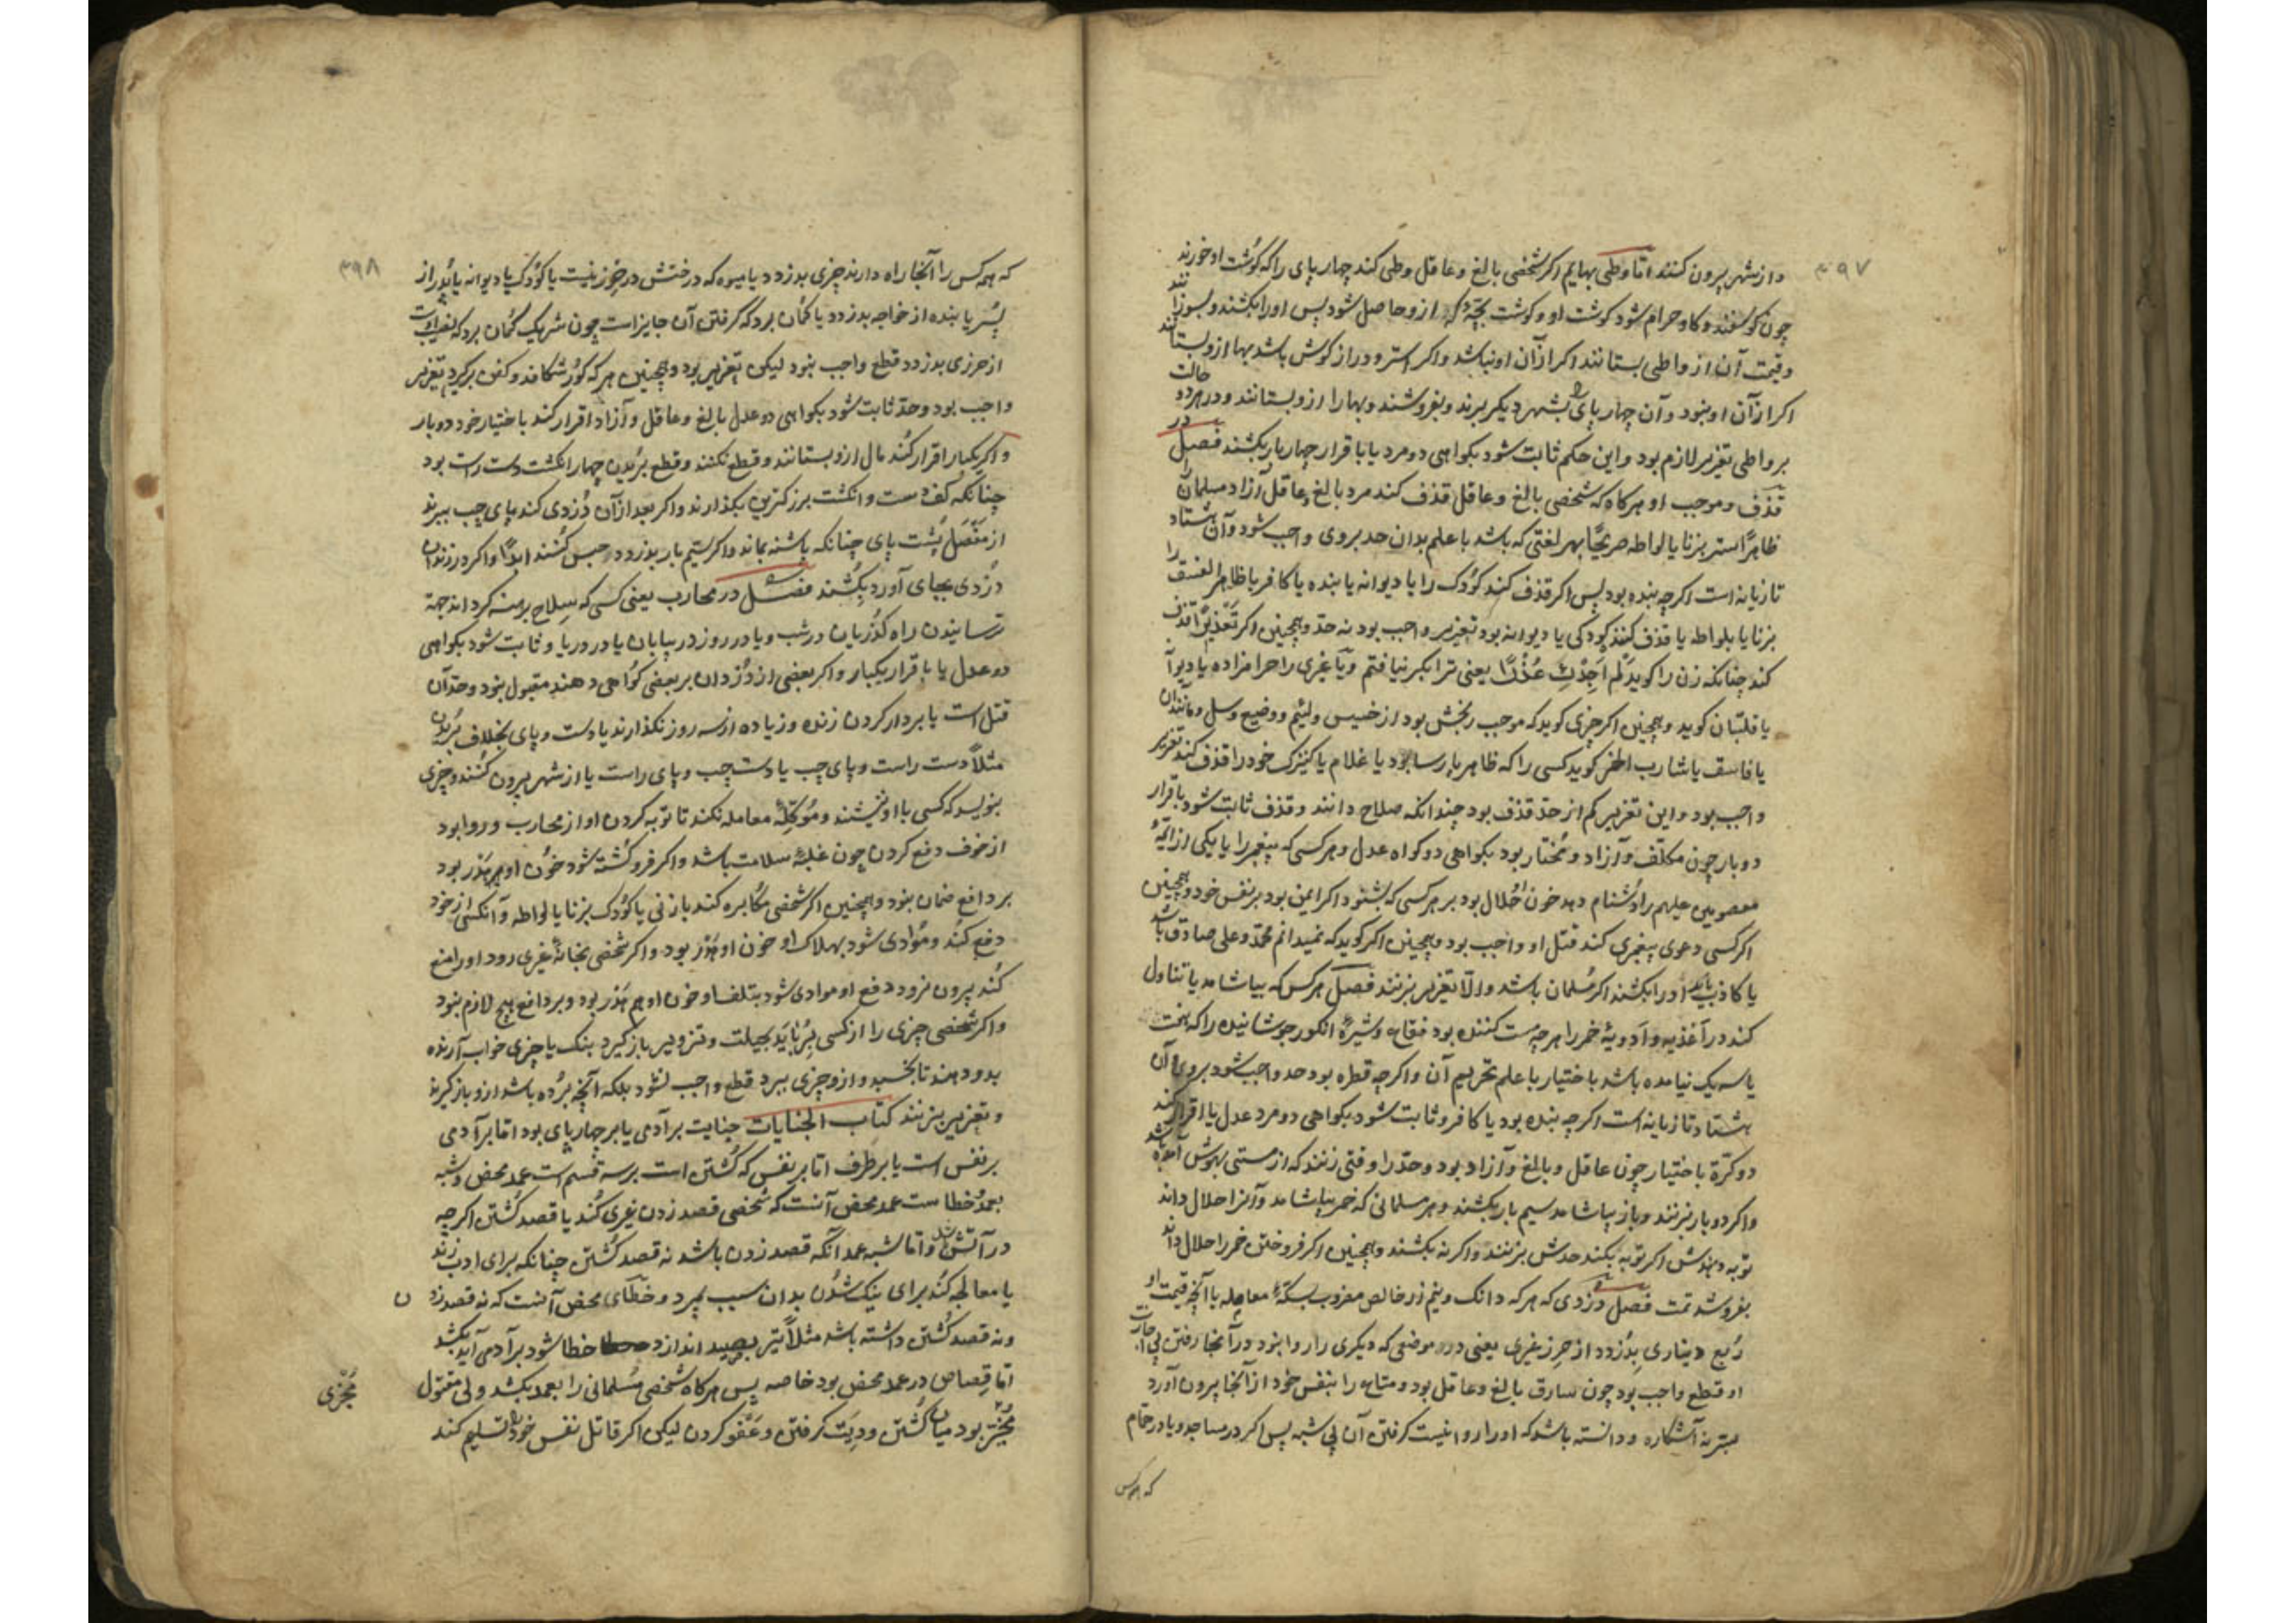 ۳۹۷
و از شهر بیرون کنند اما وطی بهایم اگر شخصی بالغ و عاقل وطی کند چهار پای را که گوشت او خورند
چون گوسفند و گاو حرام شود گوشت او و گوشت بچهٔ که ازو حاصل شود پس او را بکشند و بسوزانند
و قیمت آن از واطی بستانند اگر از آن او نباشد و اگر استر و دراز گوش باشد بها ازو بستانند
اگر از آن او نبود و آن چهار پای را بشهر دیگر برند و بفروشند و بها را ازو بستانند و در هر دو حالت
بر واطی تعزیر لازم بود و این حکم ثابت شود بگواهی دو مرد یا باقرار چهار بار بکشند فصل در
قذف و موجب او هرگاه که شخصی بالغ و عاقل قذف کند مرد بالغ و عاقل آزاد مسلمان را
ظاهرًا ستر بزنا یا لواطه صریحًا بهر لغتی که باشد با علم بدان حد بروی واجب شود و آن هشتاد
تازیانه است اگرچه بنده بود پس اگر قذف کند کودک را یا دیوانه یا بنده یا کافر یا ظاهر الفسق را
بزنا یا بلواطه یا قذف کننده کودکی یا دیوانه بود تعزیر واجب بود نه حد و همچنین اگر
کند چنانکه زن را گوید لم اجدک عذرًا یعنی ترا بکر نیافتم و یا غیری را حرامزاده یا دیوث
یا قلتبان گوید و همچنین اگر چیزی گوید که موجب رنجش بود از خسیس و لئیم و وضیع و سل و مانند آن
یا فاسق یا شارب الخمر گوید کسی را که ظاهر پارسا بود یا غلام یا کنیزک خود را قذف کند تعزیر
واجب بود و این تعزیر کم از حد قذف بود چندانکه صلاح دانند و قذف ثابت شود باقرار
دو بار چون مکلف و آزاد و مختار بود بگواهی دو گواه عدل و هر کسی که پیغمبر را یا یکی از ائمهٔ
معصومین علیهم را دشنام دهد خون او حلال بود بر هر کسی که بشنود اگر ایمن بود بر نفس خود و همچنین
اگر کسی دعوی پیغمبری کند قتل او واجب بود و همچنین اگر گوید که نمیدانم محمد و علی صادق باشد
یا کاذب باشد او را بکشند اگر مسلمان باشد و الا تعزیر بزنند فصل هر کس که بیاشامد یا تناول
کند در اغذیه و ادویهٔ خمر را هر چه مست کننده بود فقاع و شیرهٔ انگور جوشانیده را که بخت
یا سه یک نیامده باشد باختیار با علم تحریم آن و اگرچه قطره بود حد واجب شود بروی و آن
هشتاد تازیانه است اگرچه بنده بود یا کافر و ثابت شود بگواهی دو مرد عدل یا اقرار کند
دو کرة باختیار چون عاقل و بالغ و آزاد بود و حد را وقتی زنند که از مستی بهوش آمده باشد
و اگر دو بار بزنند و باز بیاشامد سیم بار بکشند و هر مسلمانی که خمر بیاشامد و آنرا حلال داند
توبه دهندش اگر توبه بکند حدش بزنند و اگر نه بکشند و همچنین اگر فروختن خمر را حلال داند
بفروشد تمت فصل دزدی که هر که دانک و نیم زر خالص مضروب بسکهٔ معامله یا آنچه قیمت او
ربع دیناری بدزدد از حرز غیری یعنی در موضعی که دیگری را روا نبود در آنجا رفتن بی اجازت
او قطع واجب بود چون سارق بالغ و عاقل بود و متاع را بنفس خود از آنجا بیرون آورد
بستر نه آشکاره و دانسته باشد که او را روا نیست گرفتن آن بی شبه پس اگر در مساجد و یا در حمام
که همه کس
۳۹۸
که همه کس را آنجا راه دارند چیزی بدزدد یا میوه که درختش در حرز نیست یا کودک یا دیوانه یا پدر از
پسر یا بنده از خواجه بدزدد یا گمان برد که گرفتن آن جایز است چون شریک گمان برد که نصیب اوست
از حرزی بدزدد قطع واجب نبود لیکن تعزیر بود و همچنین هر که گور شکافد و کفن برگیرد تعزیر
واجب بود و حد ثابت شود بگواهی دو عدل بالغ و عاقل و آزاد اقرار کند باختیار خود دو بار
و اگر یکبار اقرار کند مال ازو بستانند و قطع نکنند و قطع بریدن چهار انگشت دست راست بود
چنانکه کف دست و انگشت بزرگترین بگذارند و اگر بعد از آن دزدی کند پای چپ ببرند
از مفصل پشت پای چنانکه پاشنه بماند و اگر سیم بار بدزدد حبس کنند ابدًا و اگر در زندان
دزدی بجای آورد بکشند فصل در محارب یعنی کسی که سلاح برهنه گرداند جهة
ترسانیدن راه گذریان در شب و یا در روز در بیابان یا در دریا و ثابت شود بگواهی
دو عدل یا باقرار یکبار و اگر بعضی از دزدان بر بعضی گواهی دهند مقبول نبود و حد آن
قتل است یا بردار کردن زنده و زیاده از سه روز نگذارند یا دست و پای بخلاف بریدن
مثلاً دست راست و پای چپ یا دست چپ و پای راست یا از شهر بیرون کنند و چیزی
بنویسد که کسی با او ننشیند و معامله نکند تا توبه کردن او از محارب و روا بود
از خوف دفع کردن چون غلبهٔ سلامت باشد و اگر فرو کشته شود خون او هدر بود
بر دافع ضمان نبود و همچنین اگر شخصی مکابره کند با زنی یا کودک بزنا یا لواطه و آنکس از خود
دفع کند و مؤدی شود بهلاک او خون او هدر بود و اگر شخصی بخانهٔ غیری رود او را منع
کند بیرون نرود دفع او مودی شود بتلف او خون او هم هدر بود و بر دافع هیچ لازم نبود
و اگر شخصی چیزی را از کسی برباید بحیلت و تزویر باز گیرد بنگ یا چیزی خواب آرنده
بدو دهند تا بخسبد و ازو چیزی ببرد قطع واجب نشود بلکه آنچه برده باشد ازو باز گیرند
و تعزیر بزنند کتاب الجنایات جنایت بر آدمی یا بر چهار پای بود اما بر آدمی
بر نفس است یا بر طرف اما بر نفس که کشتن است بر سه قسم است عمد محض و شبه
بعمد و خطاست عمد محض آنست که شخصی قصد زدن غیری کند یا قصد کشتن اگرچه
در آتش و اما شبه عمد آنکه قصد زدن باشد نه قصد کشتن چنانکه برای ادب زند
یا معالجه کند برای نیک شدن بدان سبب بمیرد و خطای محض آنست که نه قصد زدن
و نه قصد کشتن داشته باشد مثلاً تیر بصید اندازد خطا شود بر آدمی آید بکشد
اما قصاص در عمد محض بود خاصه پس هرگاه شخصی مسلمانی را بعمد بکشد ولی مقتول
مخیر بود میان کشتن و دیت گرفتن و عفو کردن لیکن اگر قاتل نفس خود را تسلیم کند